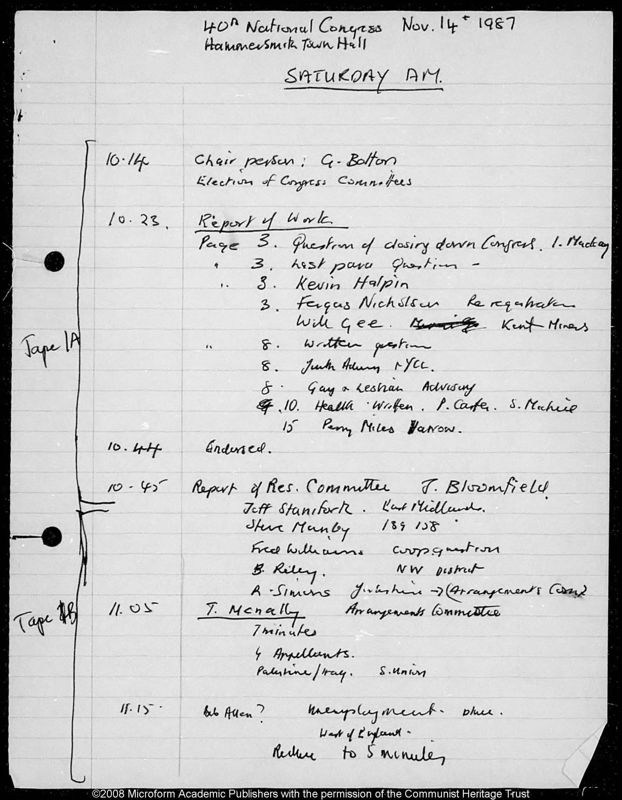 40th National Congress Nov. 14th 1987
Hammersmith Town Hall
SATURDAY AM.
10.14 Chair person: G. Bolton
Election of Congress Committees
10.23. Report of Work
Page 3. Question of closing down Congress. I. Mackay
" 3. Last para Question -
" 3. Kevin Halpin
3. Fergus Nicholson Re registration
Will Gee. Kent Miners
Tape 1A
" 8. Written question
8. YCL.
8. Gay & Lesbian Advisory
10. Health Written. P. Carter. S.
15 Perry Miles Yarrow.
10.44 Endorsed.
10-45 Report of Res. Committee J. Bloomfield
Jeff Staniforth. East Midlands.
Steve Munby 189 158
Fred Williams coop question
B. Riley. NW District
R. Simons Yorkshire → (Arrangements Com)
Tape 1B
11.05 T. McNally Arrangements Committee
7 minutes
4 Appellants.
Palestine/Iraq. S. Union
11.15. Bob Allen? Unemployment-
West of England-
Reduce to 5 minutes
©2008 Microform Academic Publishers with the permission of the Communist Heritage Trust